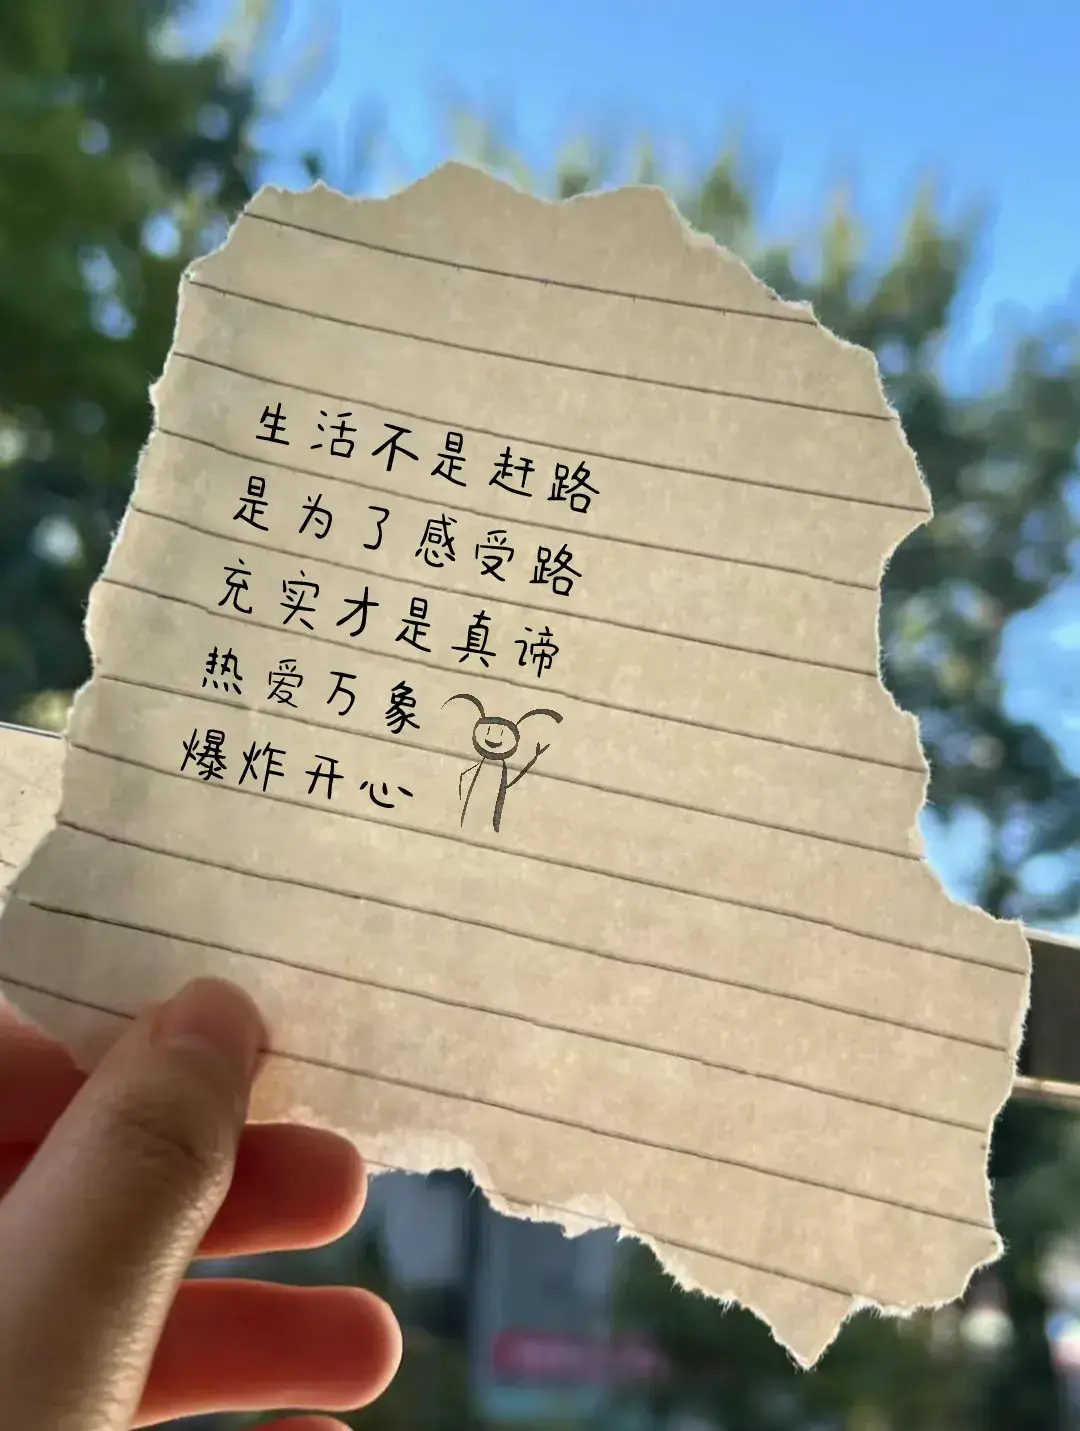 生活不是赶路
是为了感受路
充实才是真谛
热爱万象
爆炸开心